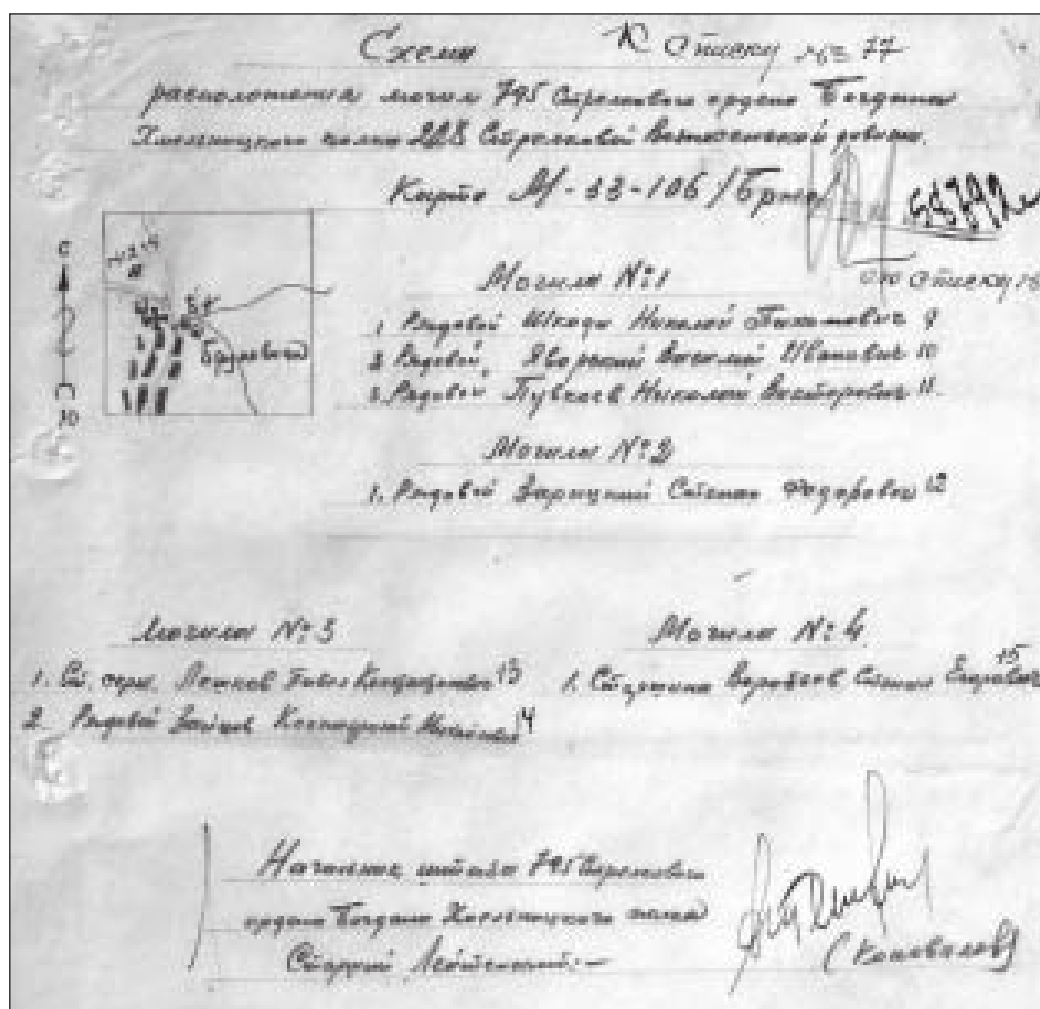 Схема К Списку № 77
расположения могил 795 Стрелкового ордена Богдана
Хмельницкого полка 228 Стрелковой Вознесенской дивизии.
Карта М-33-106
58792
С
Ю
Могила №1
по списку
1. Рядовой Шкода Николай 9
2. Рядовой Яворский Василий Иванович 10
3. Рядовой Николай Викторович 11
Могила №2
1. Рядовой Зарицкий Степан Федорович 12
Могила №3
1. Ст. серж. 13
2. Рядовой Зайцев 14
Могила №4
1. Старшина Воробьев Степан Егорович 15
Начальник штаба 795 Стрелкового
ордена Богдана Хмельницкого полка
Старший Лейтенант:-
(Коновалов)